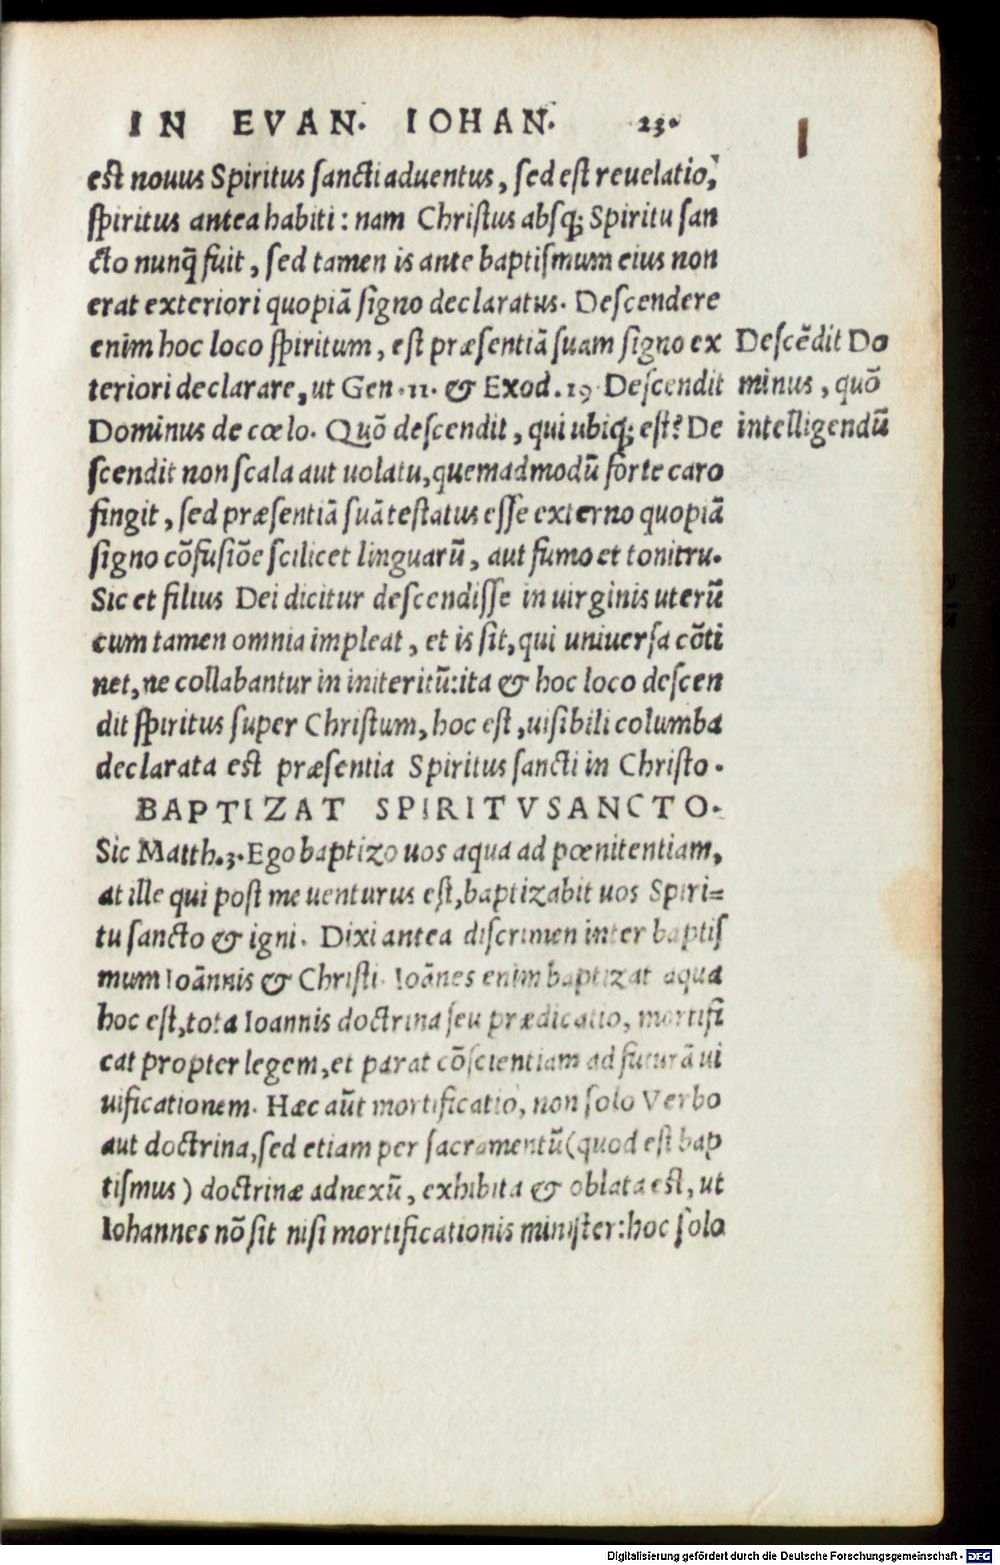 IN EVAN. IOHAN. 23.
est nouus Spiritus sancti aduentus, sed est reuelatio,
spiritus antea habiti: nam Christus absq; Spiritu san
cto nunq̃ fuit, sed tamen is ante baptismum eius non
erat exteriori quopiã signo declaratus. Descendere
enim hoc loco spiritum, est præsentiã suam signo ex
teriori declarare, ut Gen .11. & Exod. 19 Descendit
Dominus de cœlo. Quõ descendit, qui ubiq; est? De
scendit non scala aut uolatu, quemadmodũ forte caro
fingit, sed præsentiã suã testatus esse externo quopiã
signo cõfusiõe scilicet linguarũ, aut fumo et tonitru.
Sic et filius Dei dicitur descendisse in uirginis uterũ
cum tamen omnia impleat, et is sit, qui uniuersa cõti
net, ne collabantur in initeritũ: ita & hoc loco descen
dit spiritus super Christum, hoc est, uisibili columba
declarata est præsentia Spiritus sancti in Christo.
BAPTIZAT SPIRITVSANCTO.
Sic Matth.3. Ego baptizo uos aqua ad pœnitentiam,
at ille qui post me uenturus est, baptizabit uos Spiri=
tu sancto & igni. Dixi antea discrimen inter baptis
mum Ioãnnis & Christi. Ioãnes enim baptizat aqua
hoc est, tota Ioannis doctrina seu prædicatio, mortifi
cat propter legem, et parat cõscientiam ad futurã ui
uificationem. Hæc aũt mortificatio, non solo Verbo
aut doctrina, sed etiam per sacramentũ (quod est bap
tismus) doctrinæ adnexũ, exhibita & oblata est, ut
Iohannes nõ sit nisi mortificationis minister: hoc solo
Descẽdit Do
minus, quõ
intelligendũ
Digitalisierung gefördert durch die Deutsche Forschungsgemeinschaft - DFG